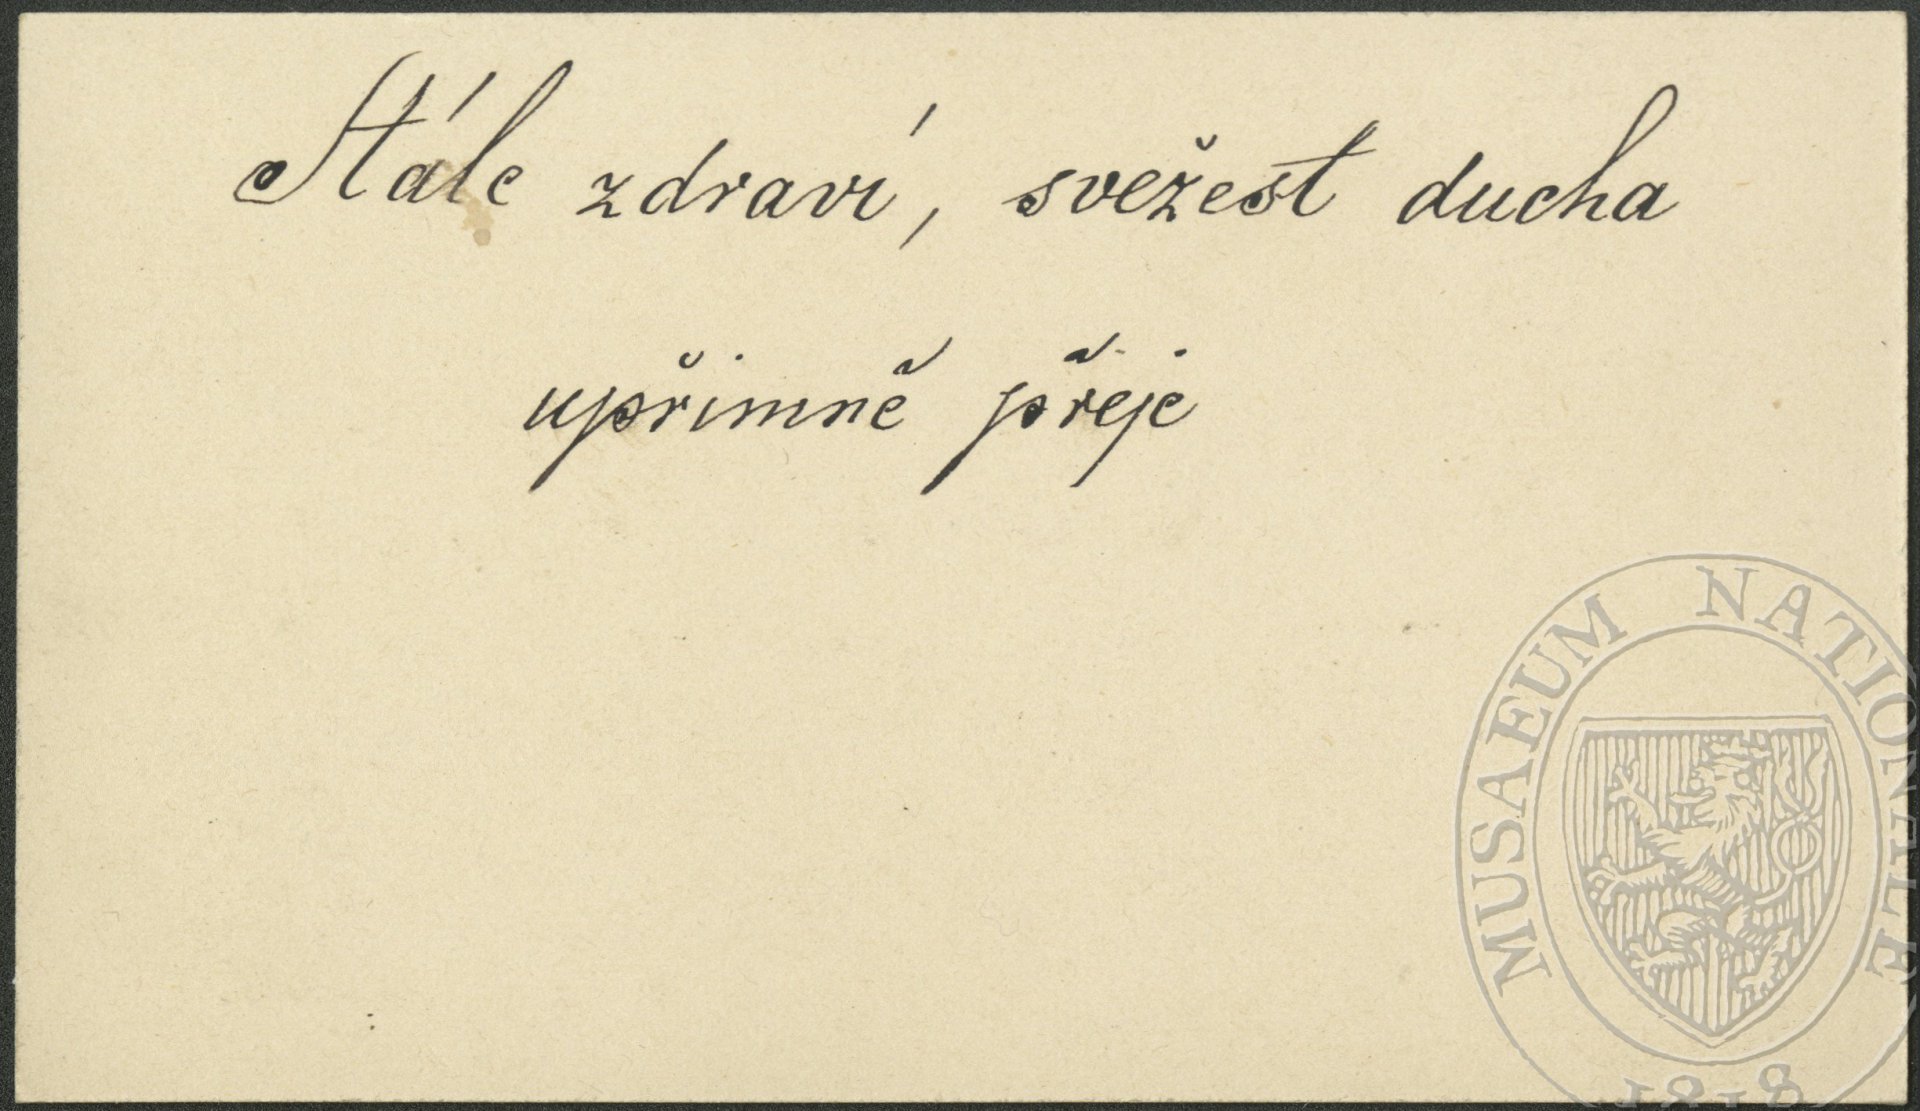 Stálé zdraví, svěžest ducha
upřimně přeje
MUSAEUM NATIONALE
1818